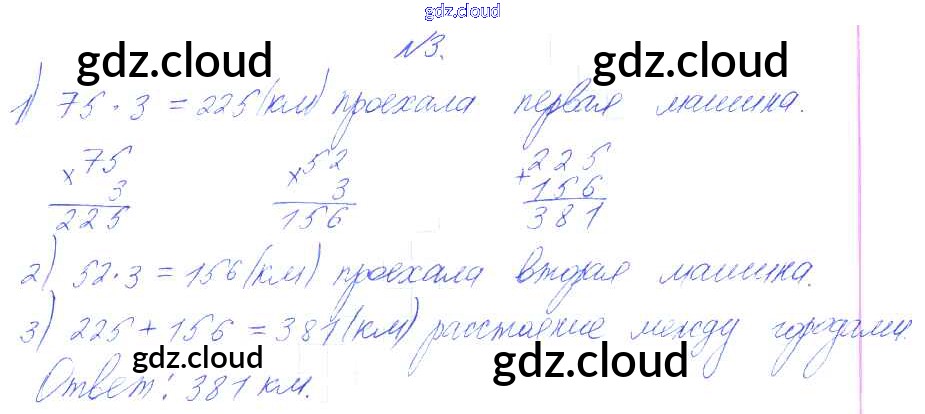 gdz.cloud
N3.
gdz.cloud gdz.cloud
1) 75 · 3 = 225 (км) проехала первая машина.
× 75 × 52 + 225
3 3 156
225 156 381
2) 52 · 3 = 156 (км) проехала вторая машина.
3) 225 + 156 = 381 (км) расстояние между городами.
gdz.cloud gdz.cloud
Ответ: 381 км.